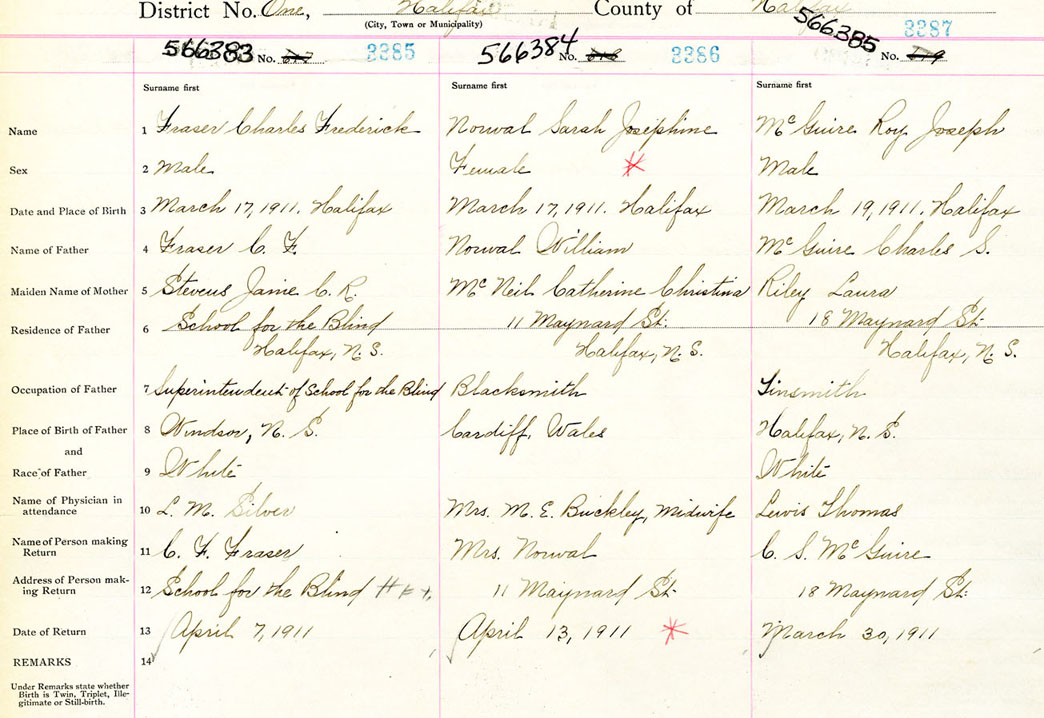 District No. One, Halifax County of Halifax
(City, Town or Municipality)
566383 No. 3385 566384 No. 3386 566385 No. 3387
Surname first Surname first Surname first
Name 1 Fraser Charles Frederick Norwal Sarah Josephine McGuire Roy Joseph
Sex 2 Male Female Male
Date and Place of Birth 3 March 17, 1911. Halifax March 17, 1911. Halifax March 19, 1911. Halifax
Name of Father 4 Fraser C. F. Norwal William McGuire Charles S.
Maiden Name of Mother 5 Stevens Janie C. R. McNeil Catherine Christina Riley Laura
Residence of Father 6 School for the Blind 11 Maynard St. 18 Maynard St.
Halifax, N. S. Halifax, N. S. Halifax, N. S.
Occupation of Father 7 Superintendent of School for the Blind Blacksmith Tinsmith
Place of Birth of Father 8 Windsor, N. S. Cardiff, Wales Halifax, N. S.
and
Race of Father 9 White White
Name of Physician in
attendance 10 L. M. Silver Mrs. M. E. Buckley, Midwife Lewis Thomas
Name of Person making
Return 11 C. F. Fraser Mrs. Norwal C. S. McGuire
Address of Person mak-
ing Return 12 School for the Blind 11 Maynard St. 18 Maynard St.
Date of Return 13 April 7, 1911 April 13, 1911 March 30, 1911
REMARKS 14
Under Remarks state whether
Birth is Twin, Triplet, Ille-
gitimate or Still-birth.